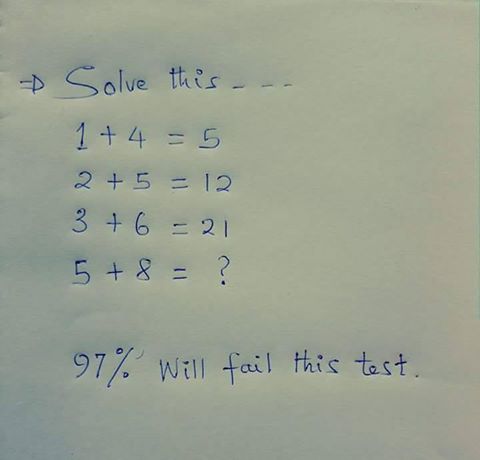 ⇒ Solve this - - -
1 + 4 = 5
2 + 5 = 12
3 + 6 = 21
5 + 8 = ?
97% Will fail this test.